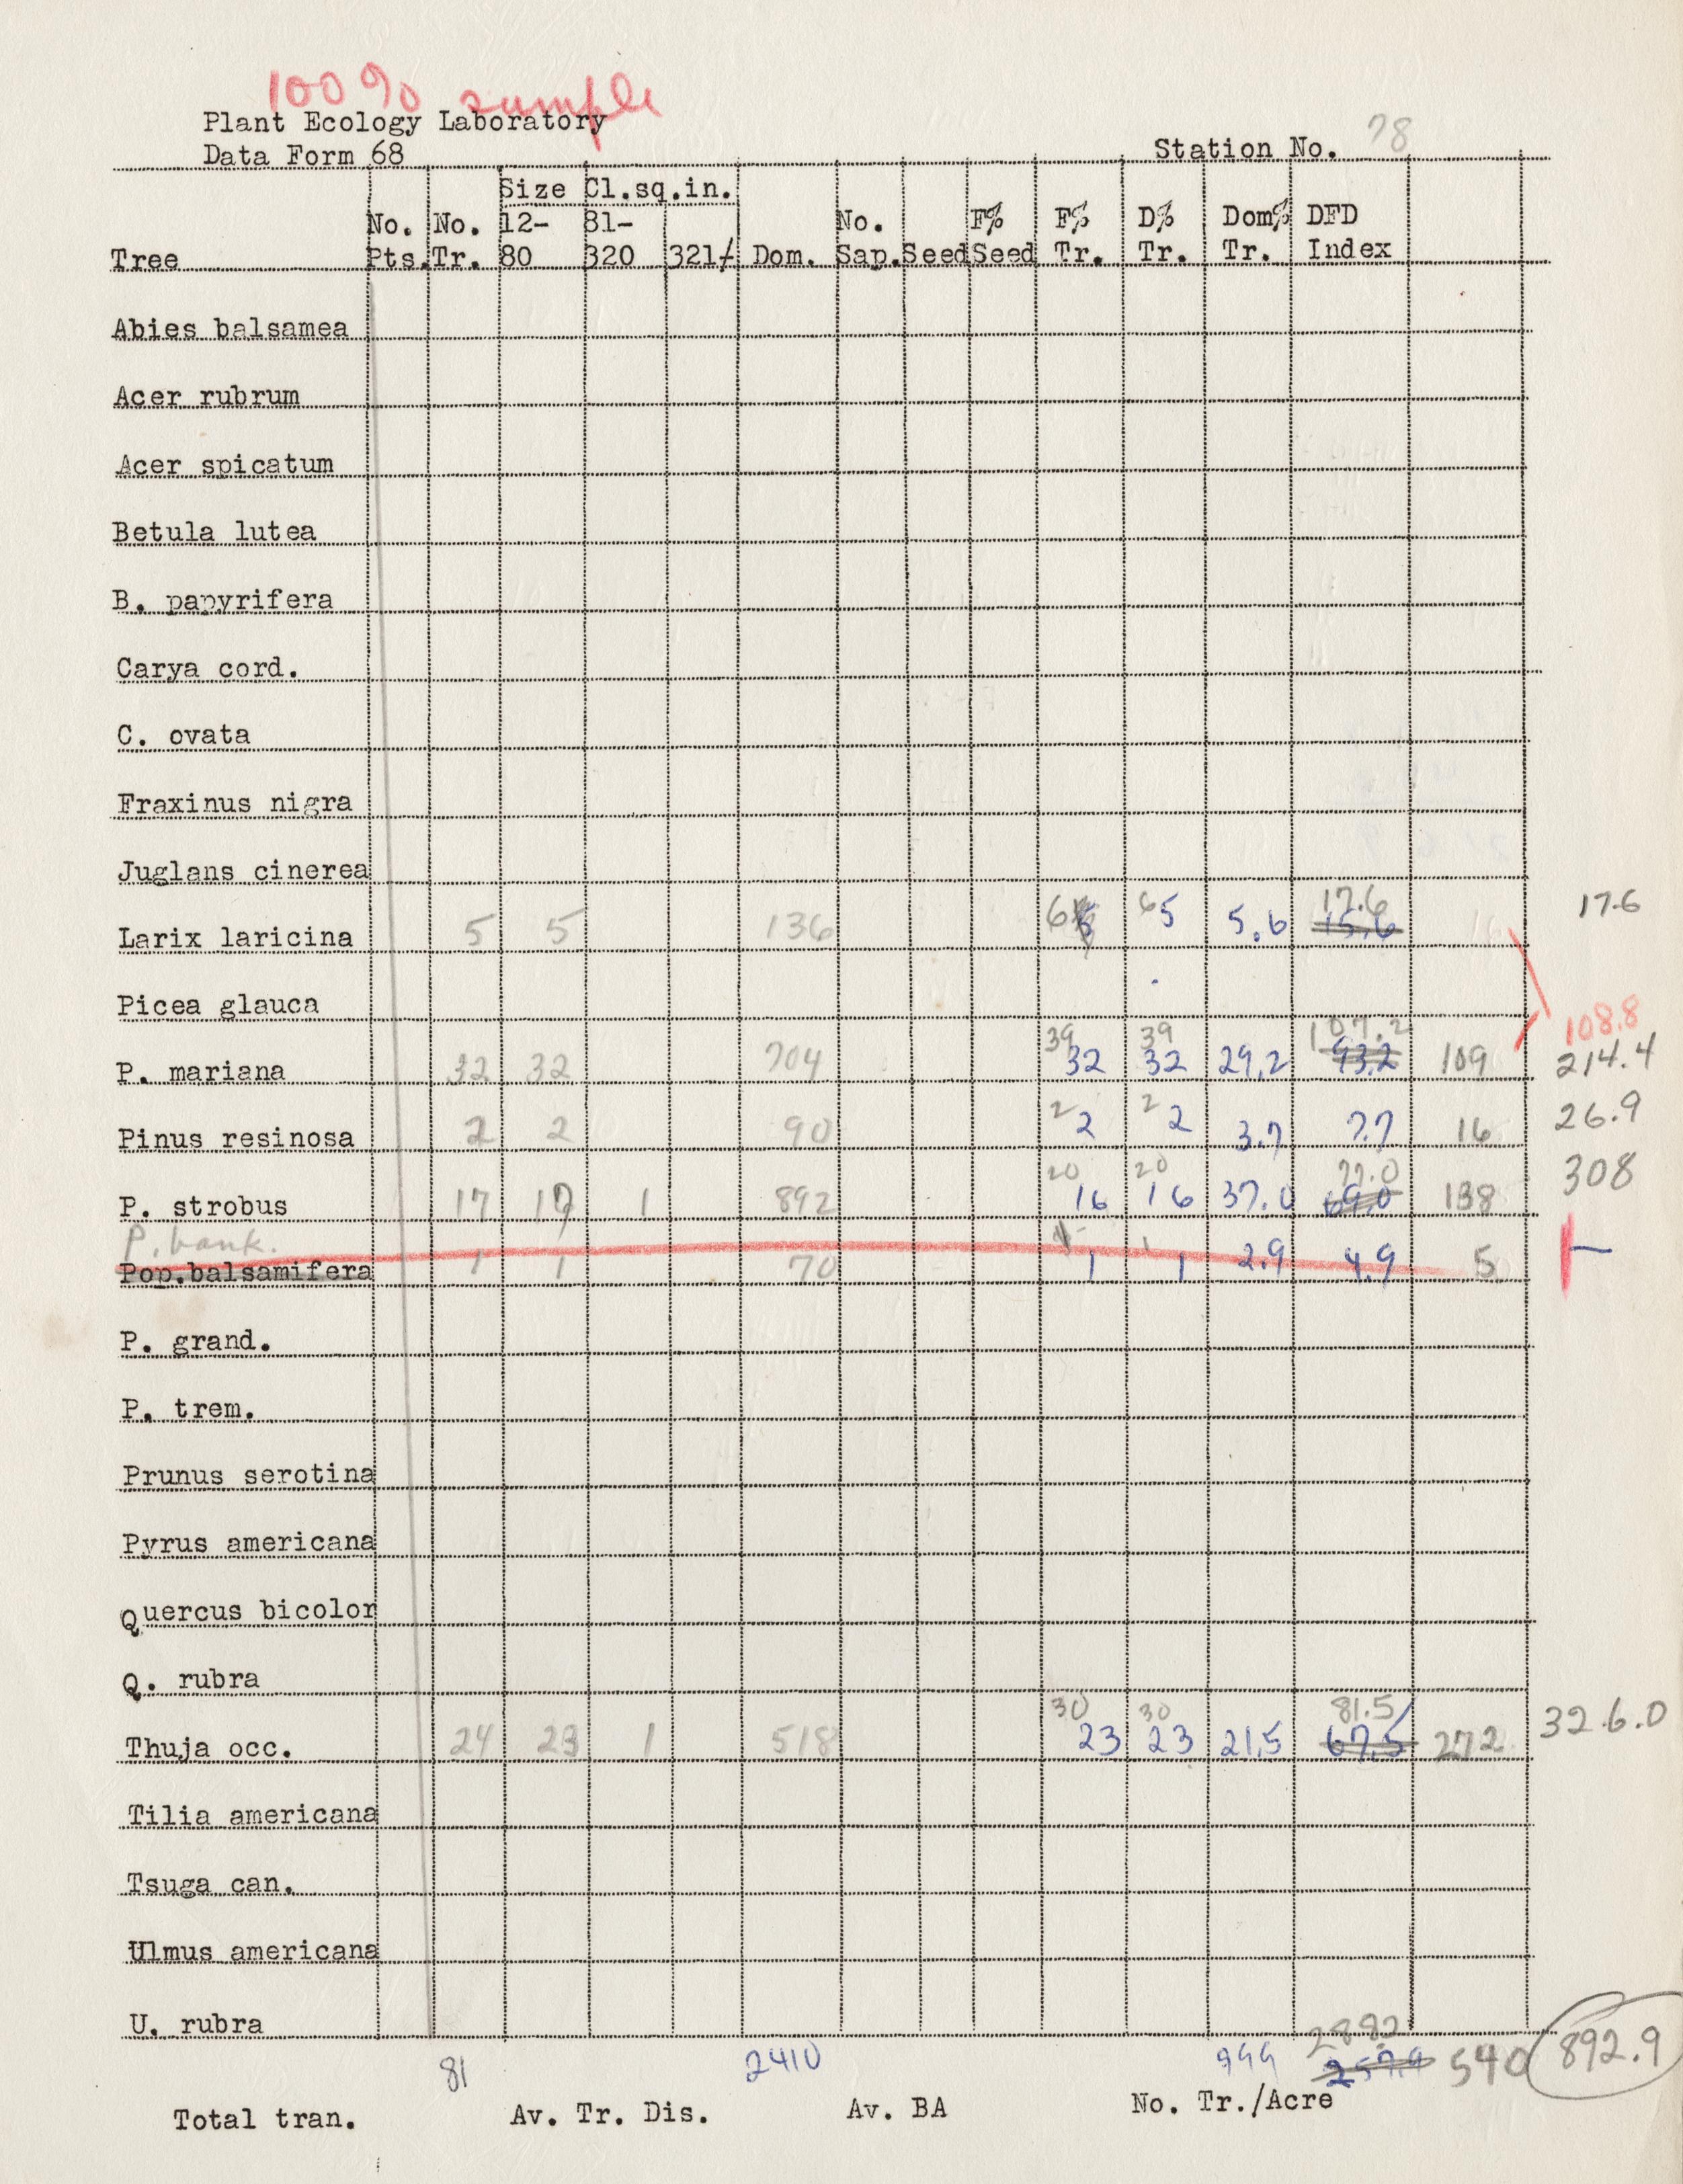 100% sample
Plant Ecology Laboratory
Data Form 68 Station No. 78
Size Cl.sq.in.
No. No. 12- 81- No. F% F% D% Dom% DFD
Tree Pts. Tr. 80 320 321/ Dom. Sap. Seed Seed Tr. Tr. Tr. Index
Abies balsamea
Acer rubrum
Acer spicatum
Betula lutea
B. papyrifera
Carya cord.
C. ovata
Fraxinus nigra
Juglans cinerea
6 6 17.6 17.6
Larix laricina 5 5 136 5 5.6 15.6 16
Picea glauca
108.8
39 39 107.2
P. mariana 32 32 704 32 32 29.2 93.2 109 214.4
2 2 26.9
Pinus resinosa 2 2 90 2 2 3.7 7.7 16
20 20 77.0 308
P. strobus 17 17 1 892 16 16 37.0 69.0 138
P. bank. 1 1
Pop.balsamifera 1 1 70 1 1 2.9 4.9 5
P. grand.
P. trem.
Prunus serotina
Pyrus americana
Quercus bicolor
Q. rubra
30 30 81.5 326.0
Thuja occ. 24 23 1 518 23 23 21.5 67.5 272
Tilia americana
Tsuga can.
Ulmus americana
U. rubra
2882
81 2410 999 540 892.9
Total tran. Av. Tr. Dis. Av. BA No. Tr./Acre